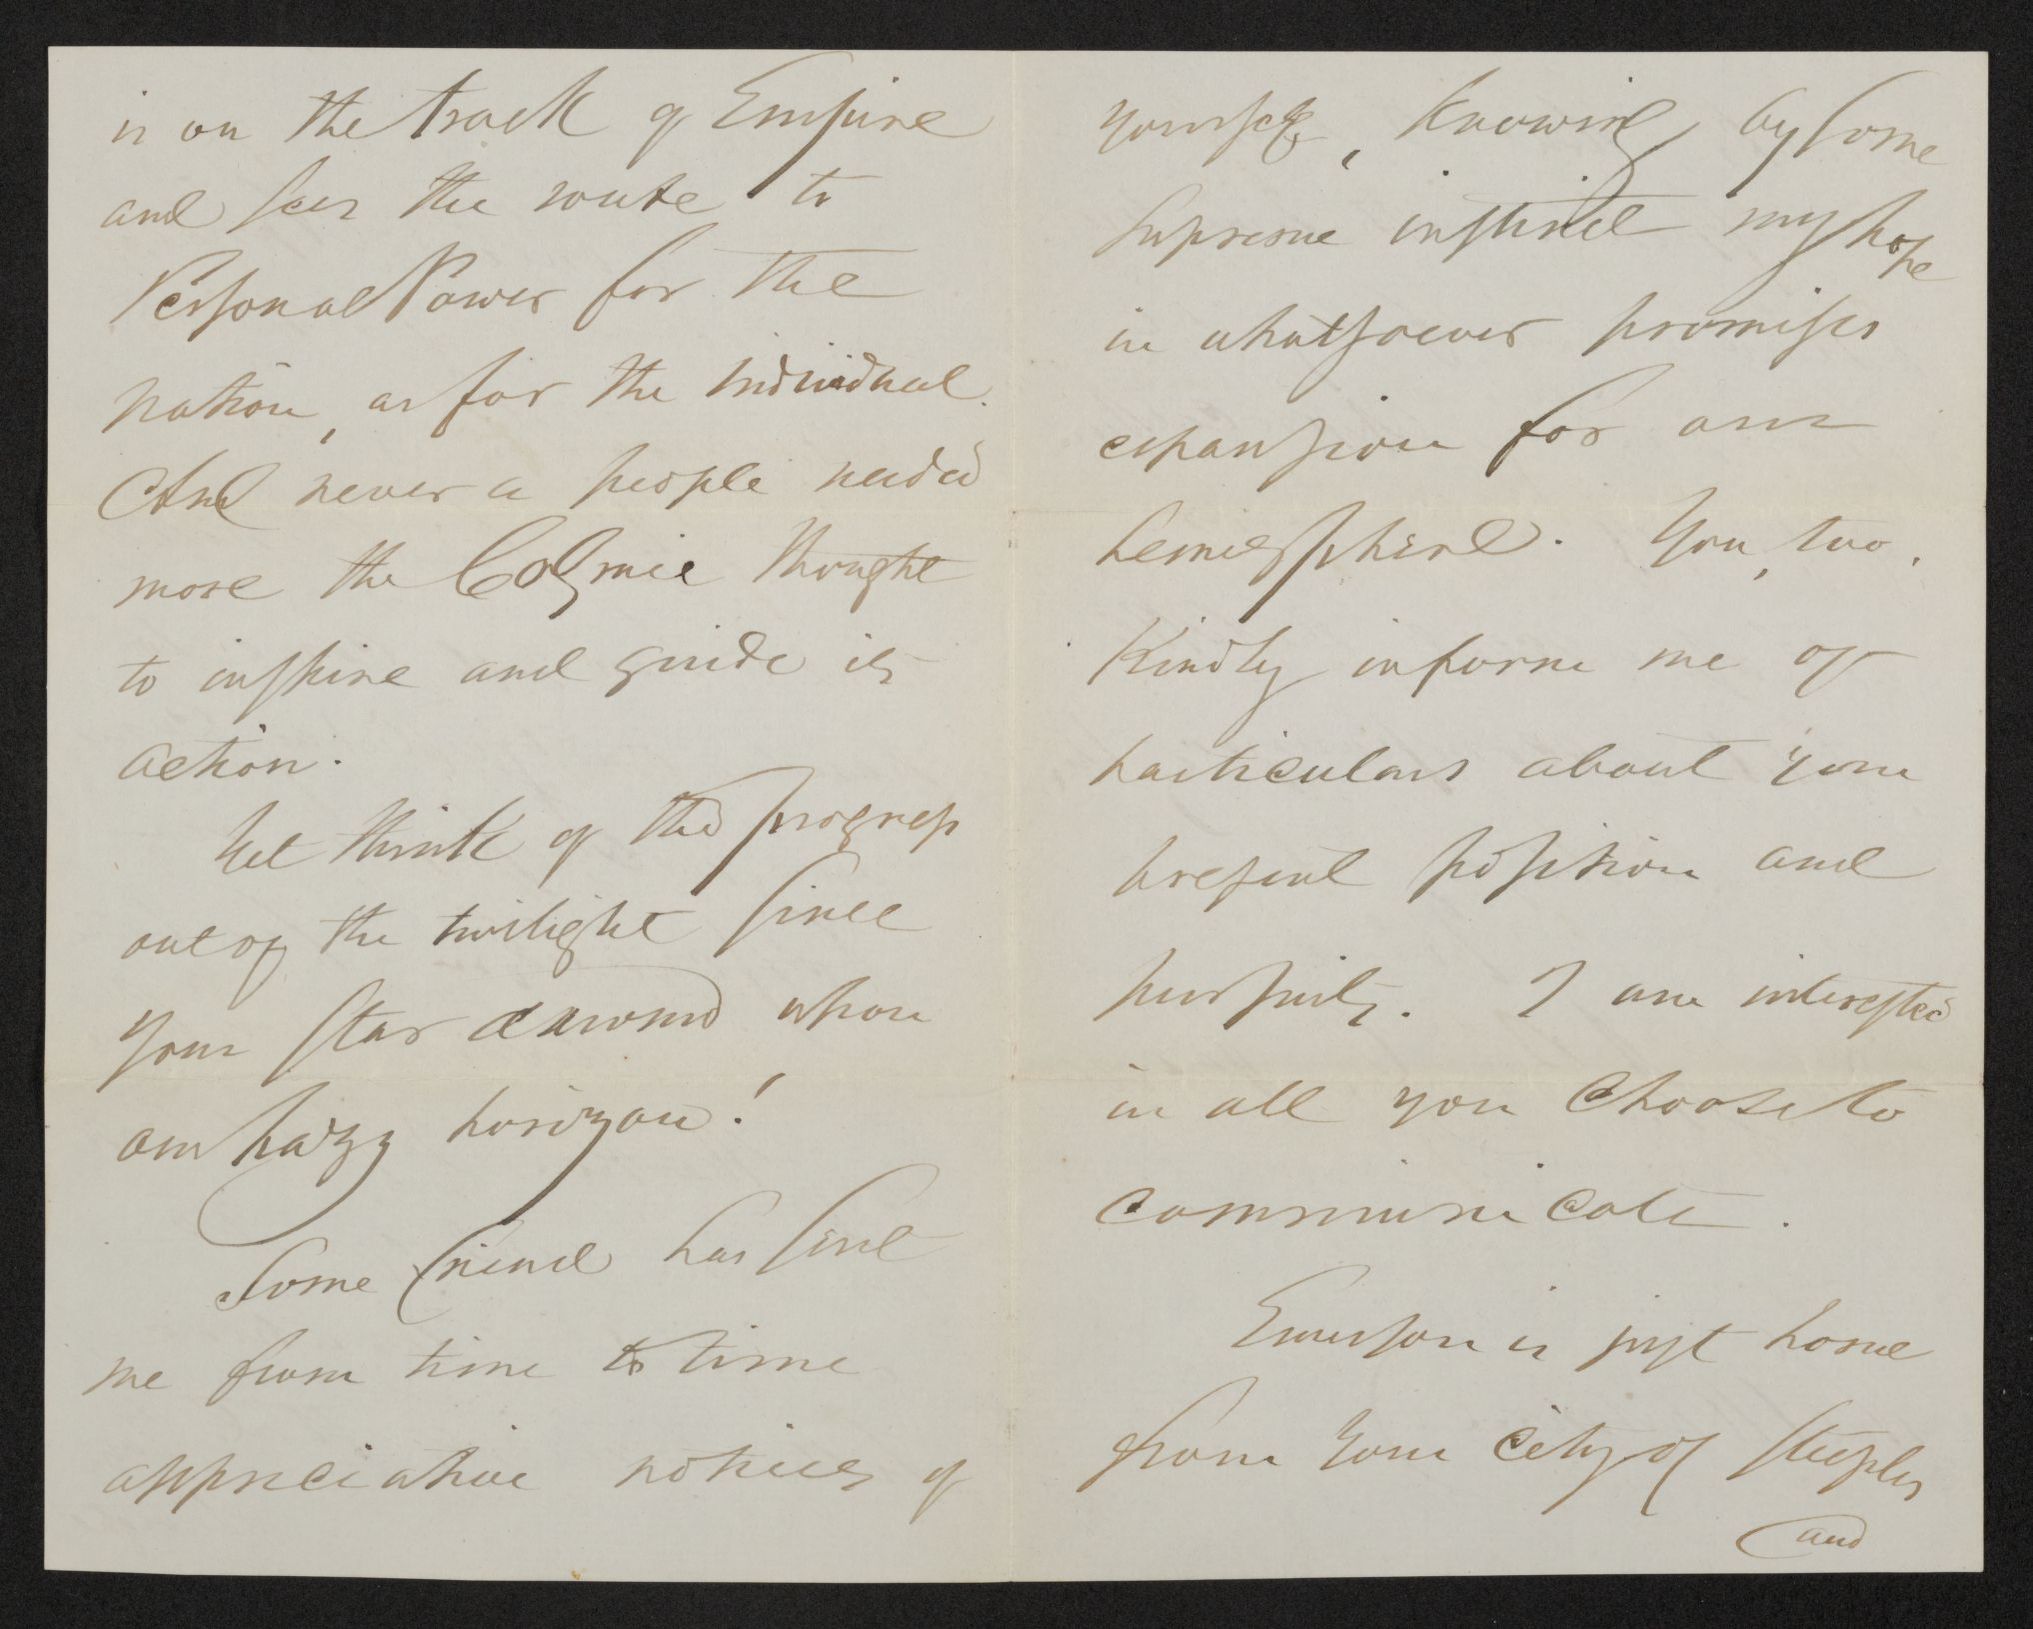 is on the track of Empire
and sees the route to
Personal Power for the
nation, as for the individual.
And never a people needed
more the Cosmic thought
to inspire and guide its
action.
Yet think of the progress
out of the twilight since
your star dawned upon
our hazy horizon!
Some friend has sent
me from time to time
appreciative notices of
yourself, knowing by some
supreme instinct my hope
in whatsoever promises
expansion for our
hemisphere. You, too,
Kindly inform me of
particulars about your
present position and
pursuits. I am interested
in all you choose to
communicate.
Emerson is just home
from your city of steeples
and